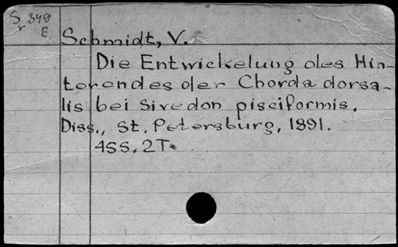 S 348
r E
Schmidt, V.
Die Entwickelung des Hin-
terendes der Chorda dorsa-
lis bei Siredon pisciformis.
Diss., St. Petersburg, 1891.
4SS. 2T.